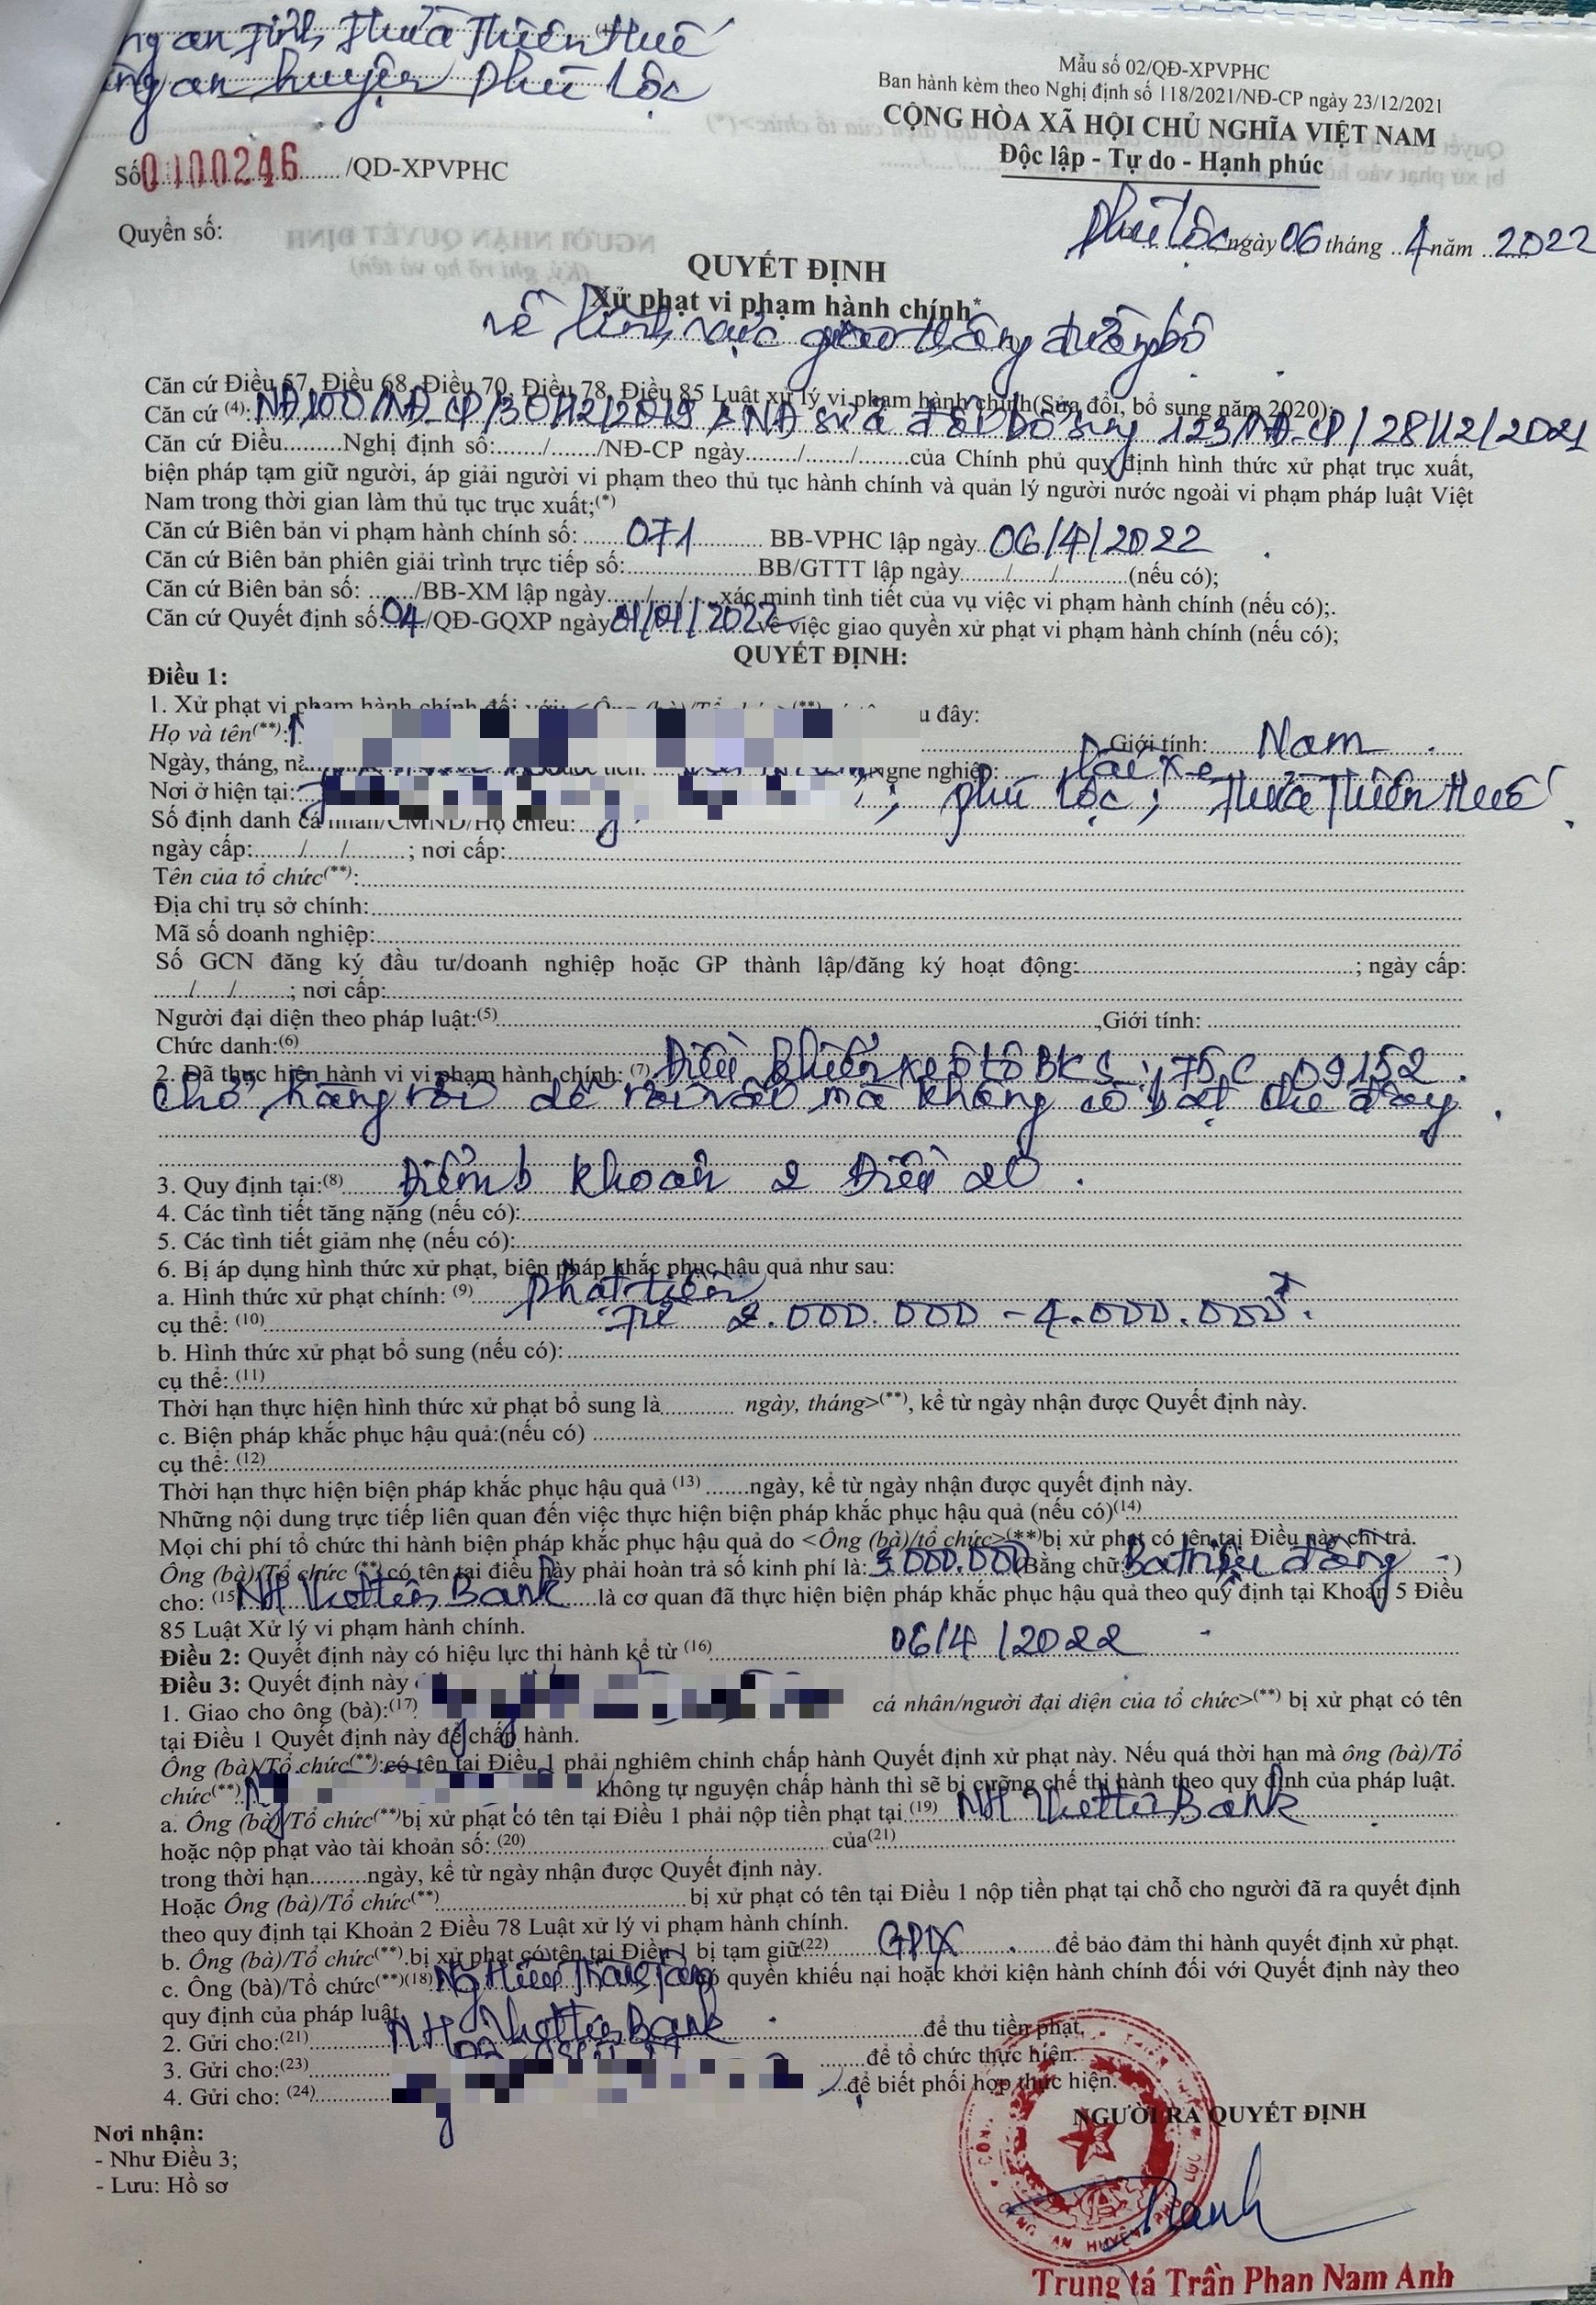 ng an Tỉnh Thừa Thiên Huế
ng an huyện Phú Lộc
Mẫu số 02/QĐ-XPVPHC
Ban hành kèm theo Nghị định số 118/2021/NĐ-CP ngày 23/12/2021
CỘNG HÒA XÃ HỘI CHỦ NGHĨA VIỆT NAM
Độc lập - Tự do - Hạnh phúc
Số 0100246 /QD-XPVPHC
Quyển số:
Phú Lộc ngày 06 tháng 4 năm 2022
QUYẾT ĐỊNH
Xử phạt vi phạm hành chính*
về lĩnh vực giao thông đường bộ
Căn cứ Điều 57, Điều 68, Điều 70, Điều 78, Điều 85 Luật xử lý vi phạm hành chính(Sửa đổi, bổ sung năm 2020);
Căn cứ (4): NĐ100/NĐ-CP/30/12/2019 NĐ sửa đổi bổ sung 123/NĐ-CP/28/12/2021
Căn cứ Điều.........Nghị định số:......./......./NĐ-CP ngày......../......./........của Chính phủ quy định hình thức xử phạt trục xuất,
biện pháp tạm giữ người, áp giải người vi phạm theo thủ tục hành chính và quản lý người nước ngoài vi phạm pháp luật Việt
Nam trong thời gian làm thủ tục trục xuất;(*)
Căn cứ Biên bản vi phạm hành chính số: 071 BB-VPHC lập ngày 06/4/2022
Căn cứ Biên bản phiên giải trình trực tiếp số:....................BB/GTTT lập ngày......../......./............(nếu có);
Căn cứ Biên bản số: ......./BB-XM lập ngày....../...../......xác minh tình tiết của vụ việc vi phạm hành chính (nếu có);.
Căn cứ Quyết định số: 04/QĐ-GQXP ngày 01/01/2022 về việc giao quyền xử phạt vi phạm hành chính (nếu có);
QUYẾT ĐỊNH:
Điều 1:
1. Xử phạt vi phạm hành chính đối với: <Ông (bà)/Tổ chức>(**) u đây:
Họ và tên(**): Giới tính: Nam
Ngày, tháng, Nghề nghiệp: Lái xe
Nơi ở hiện tại: ; Phú Lộc; Thừa Thiên Huế
Số định danh cá nhân/CMND/Hộ chiếu:
ngày cấp:......./...../..........; nơi cấp:
Tên của tổ chức(**):
Địa chỉ trụ sở chính:
Mã số doanh nghiệp:
Số GCN đăng ký đầu tư/doanh nghiệp hoặc GP thành lập/đăng ký hoạt động:; ngày cấp:
....../...../.........; nơi cấp:
Người đại diện theo pháp luật:(5) ,Giới tính:
Chức danh:(6)
2. Đã thực hiện hành vi vi phạm hành chính: (7) Điều khiển xe ô tô BKS: 75C 09152
Chở hàng rời dễ rơi vãi mà không có bạt che đậy
3. Quy định tại:(8) Điểm b Khoản 2 Điều 20
4. Các tình tiết tăng nặng (nếu có):
5. Các tình tiết giảm nhẹ (nếu có):
6. Bị áp dụng hình thức xử phạt, biện pháp khắc phục hậu quả như sau:
a. Hình thức xử phạt chính: (9) Phạt tiền
cụ thể: (10) Từ 2.000.000 - 4.000.000đ
b. Hình thức xử phạt bổ sung (nếu có):
cụ thể: (11)
Thời hạn thực hiện hình thức xử phạt bổ sung là............ ngày, tháng>(**), kể từ ngày nhận được Quyết định này.
c. Biện pháp khắc phục hậu quả:(nếu có)
cụ thể: (12)
Thời hạn thực hiện biện pháp khắc phục hậu quả (13).......ngày, kể từ ngày nhận được quyết định này.
Những nội dung trực tiếp liên quan đến việc thực hiện biện pháp khắc phục hậu quả (nếu có)(14)
Mọi chi phí tổ chức thi hành biện pháp khắc phục hậu quả do <Ông (bà)/tổ chức>(**)bị xử phạt có tên tại Điều này chi trả.
Ông (bà)/Tổ chức (**)có tên tại điều này phải hoàn trả số kinh phí là: 3.000.000 (Bằng chữ: Ba triệu đồng )
cho: (15 NH Viettin Bank là cơ quan đã thực hiện biện pháp khắc phục hậu quả theo quy định tại Khoản 5 Điều
85 Luật Xử lý vi phạm hành chính.
Điều 2: Quyết định này có hiệu lực thi hành kể từ (16) 06/4/2022
Điều 3: Quyết định này
1. Giao cho ông (bà):(17) cá nhân/người đại diện của tổ chức>(**) bị xử phạt có tên
tại Điều 1 Quyết định này để chấp hành.
Ông (bà)/Tổ chức(**):có tên tại Điều 1 phải nghiêm chỉnh chấp hành Quyết định xử phạt này. Nếu quá thời hạn mà ông (bà)/Tổ
chức(**) không tự nguyện chấp hành thì sẽ bị cưỡng chế thi hành theo quy định của pháp luật.
a. Ông (bà)/Tổ chức(**)bị xử phạt có tên tại Điều 1 phải nộp tiền phạt tại (19) NH Viettin Bank
hoặc nộp phạt vào tài khoản số: (20) của(21)
trong thời hạn.........ngày, kể từ ngày nhận được Quyết định này.
Hoặc Ông (bà)/Tổ chức(**) bị xử phạt có tên tại Điều 1 nộp tiền phạt tại chỗ cho người đã ra quyết định
theo quy định tại Khoản 2 Điều 78 Luật xử lý vi phạm hành chính.
b. Ông (bà)/Tổ chức(**).bị xử phạt có tên tại Điều 1 bị tạm giữ(22) GPLX để bảo đảm thi hành quyết định xử phạt.
c. Ông (bà)/Tổ chức(**)(18) quyền khiếu nại hoặc khởi kiện hành chính đối với Quyết định này theo
quy định của pháp luật
2. Gửi cho:(21) NH Viettin Bank để thu tiền phạt.
3. Gửi cho:(23) để tổ chức thực hiện.
4. Gửi cho: (24) để biết phối hợp thực hiện.
NGƯỜI RA QUYẾT ĐỊNH
Nơi nhận:
- Như Điều 3;
- Lưu: Hồ sơ
Trung tá Trần Phan Nam Anh